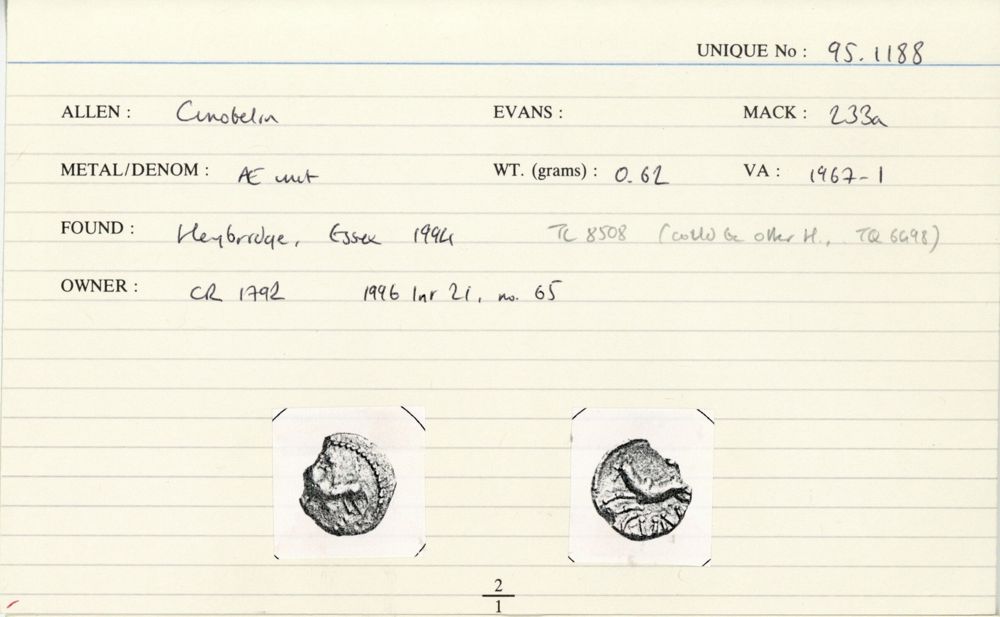 UNIQUE No : 95.1188
ALLEN : Cunobelin EVANS : MACK : 233a
METAL/DENOM : Æ unit WT. (grams) : 0.62 VA : 1967-1
FOUND : Heybridge, Essex 1994 TL 8508 (could be other H., TQ 6498)
OWNER : CR 1792 1996 Inr 21, no. 65
2
1